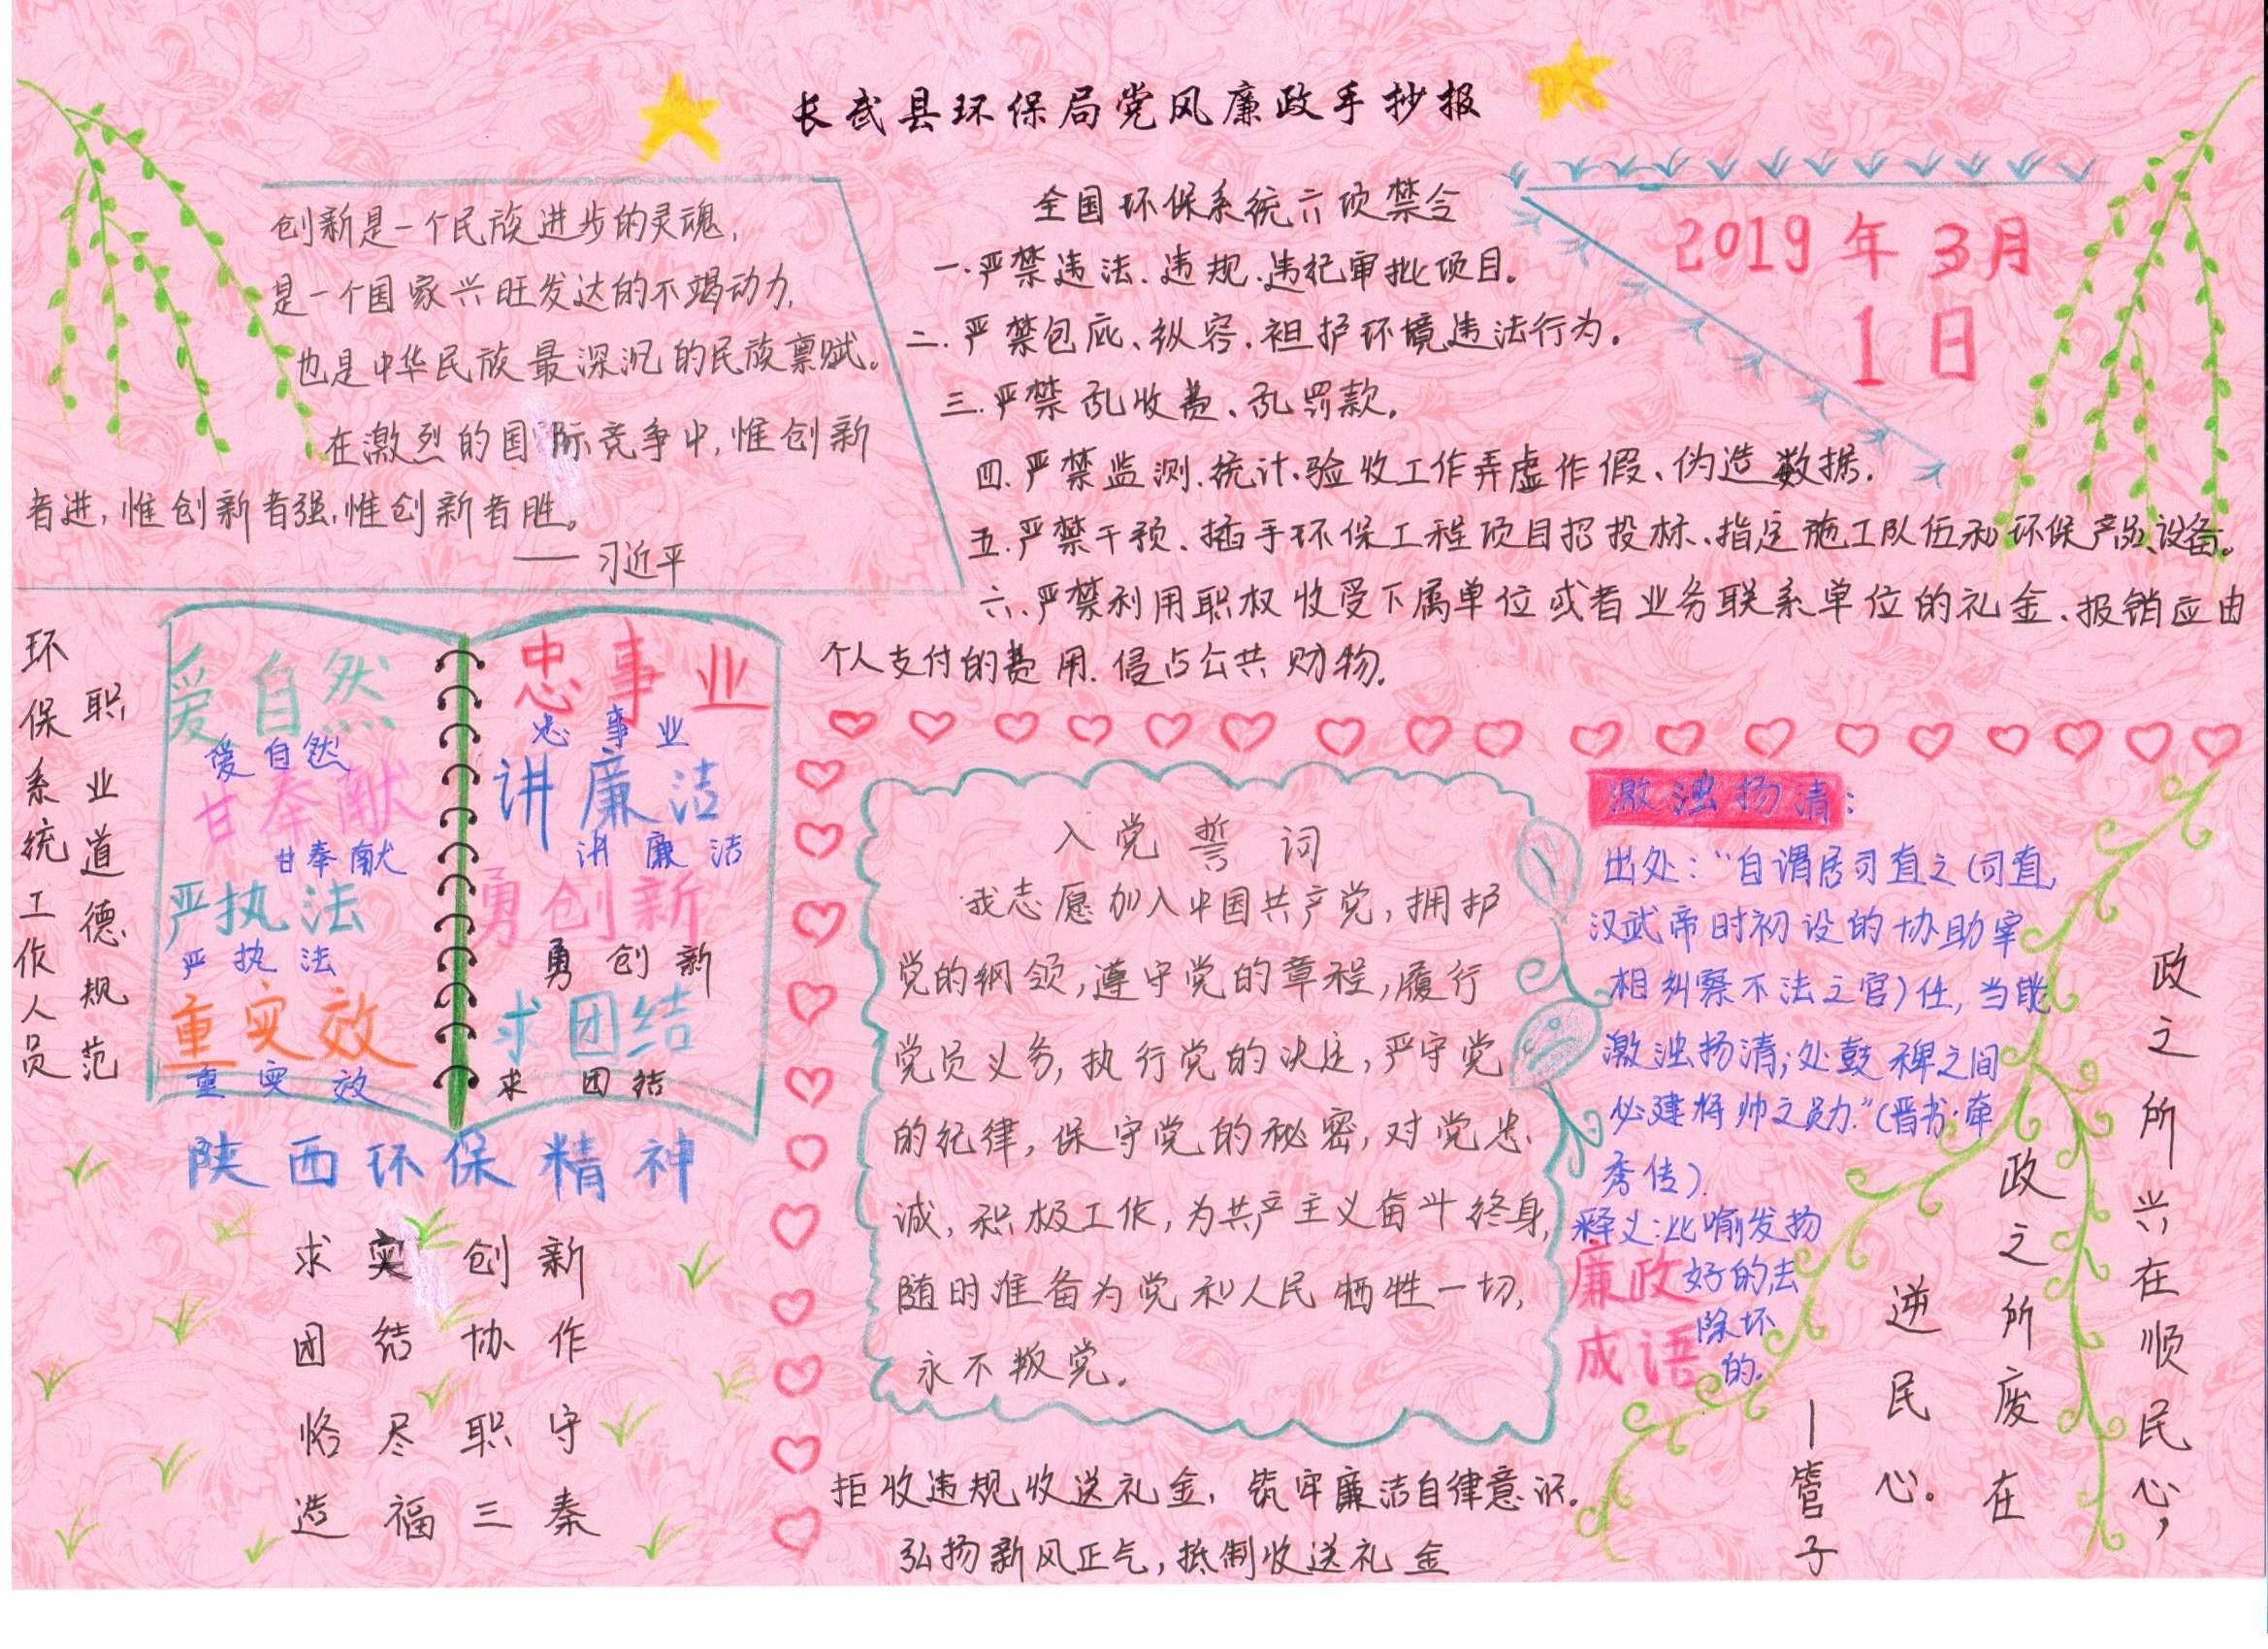 长武县环保局党风廉政手抄报
2019年3月
1日
创新是一个民族进步的灵魂,
是一个国家兴旺发达的不竭动力,
也是中华民族最深沉的民族禀赋。
在激烈的国际竞争中,惟创新
者进,惟创新者强,惟创新者胜。
——习近平
全国环保系统六项禁令
一.严禁违法、违规、违纪审批项目。
二.严禁包庇、纵容、袒护环境违法行为。
三.严禁乱收费、乱罚款。
四.严禁监测、统计、验收工作弄虚作假、伪造数据.
五.严禁干预、插手环保工程项目招投标、指定施工队伍和环保产品、设备。
六.严禁利用职权收受下属单位或者业务联系单位的礼金、报销应由
个人支付的费用.侵占公共财物.
环保系统工作人员
职业道德规范
爱自然
爱自然
甘奉献
甘奉献
严执法
严执法
重实效
重实效
忠事业
忠事业
讲廉洁
讲廉洁
勇创新
勇创新
求团结
求团结
陕西环保精神
求实创新
团结协作
恪尽职守
造福三秦
入党誓词
我志愿加入中国共产党,拥护
党的纲领,遵守党的章程,履行
党员义务,执行党的决定,严守党
的纪律,保守党的秘密,对党忠
诚,积极工作,为共产主义奋斗终身,
随时准备为党和人民牺牲一切,
永不叛党.
拒收违规收送礼金,筑牢廉洁自律意识。
弘扬新风正气,抵制收送礼金
激浊扬清:
出处:"自谓居司直之(司直,
汉武帝时初设的协助宰
相纠察不法之官)任,当能
激浊扬清;处鼓裨之间
必建将帅之勋."(晋书·牵
秀传).
释义:比喻发扬
好的,去
除坏
的.
廉政
成语
政之所兴在顺民心,
政之所废在
逆民心。
—管子